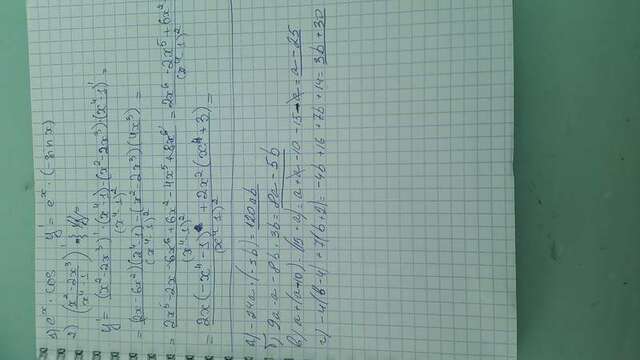 1) e^x · cos y' = e^x · (-sin x)
2) (x² - 2x³ / x⁴ - 1)'
y' = (x² - 2x³)' · (x⁴ - 1) - (x² - 2x³) · (x⁴ - 1)' / (x⁴ - 1)² =
= (2x - 6x²)(x⁴ - 1) - (x² - 2x³)(4x³) / (x⁴ - 1)² =
= 2x⁵ - 2x - 6x⁶ + 6x² - 4x⁵ + 8x⁶ / (x⁴ - 1)² = 2x⁶ - 2x⁵ + 6x² / (x⁴ - 1)²
= 2x(-x⁴ - 1) + 2x²(x⁴ + 3) / (x⁴ - 1)² =
а) -24a · (-5b) = 120ab
б) 9a - a - 8b + 3b = 8a - 5b
в) a + (a - 10) - (15 + a) = a + a - 10 - 15 - a = a - 25
г) -4(b - 4) + 7(b + 2) = -4b + 16 + 7b + 14 = 3b + 30